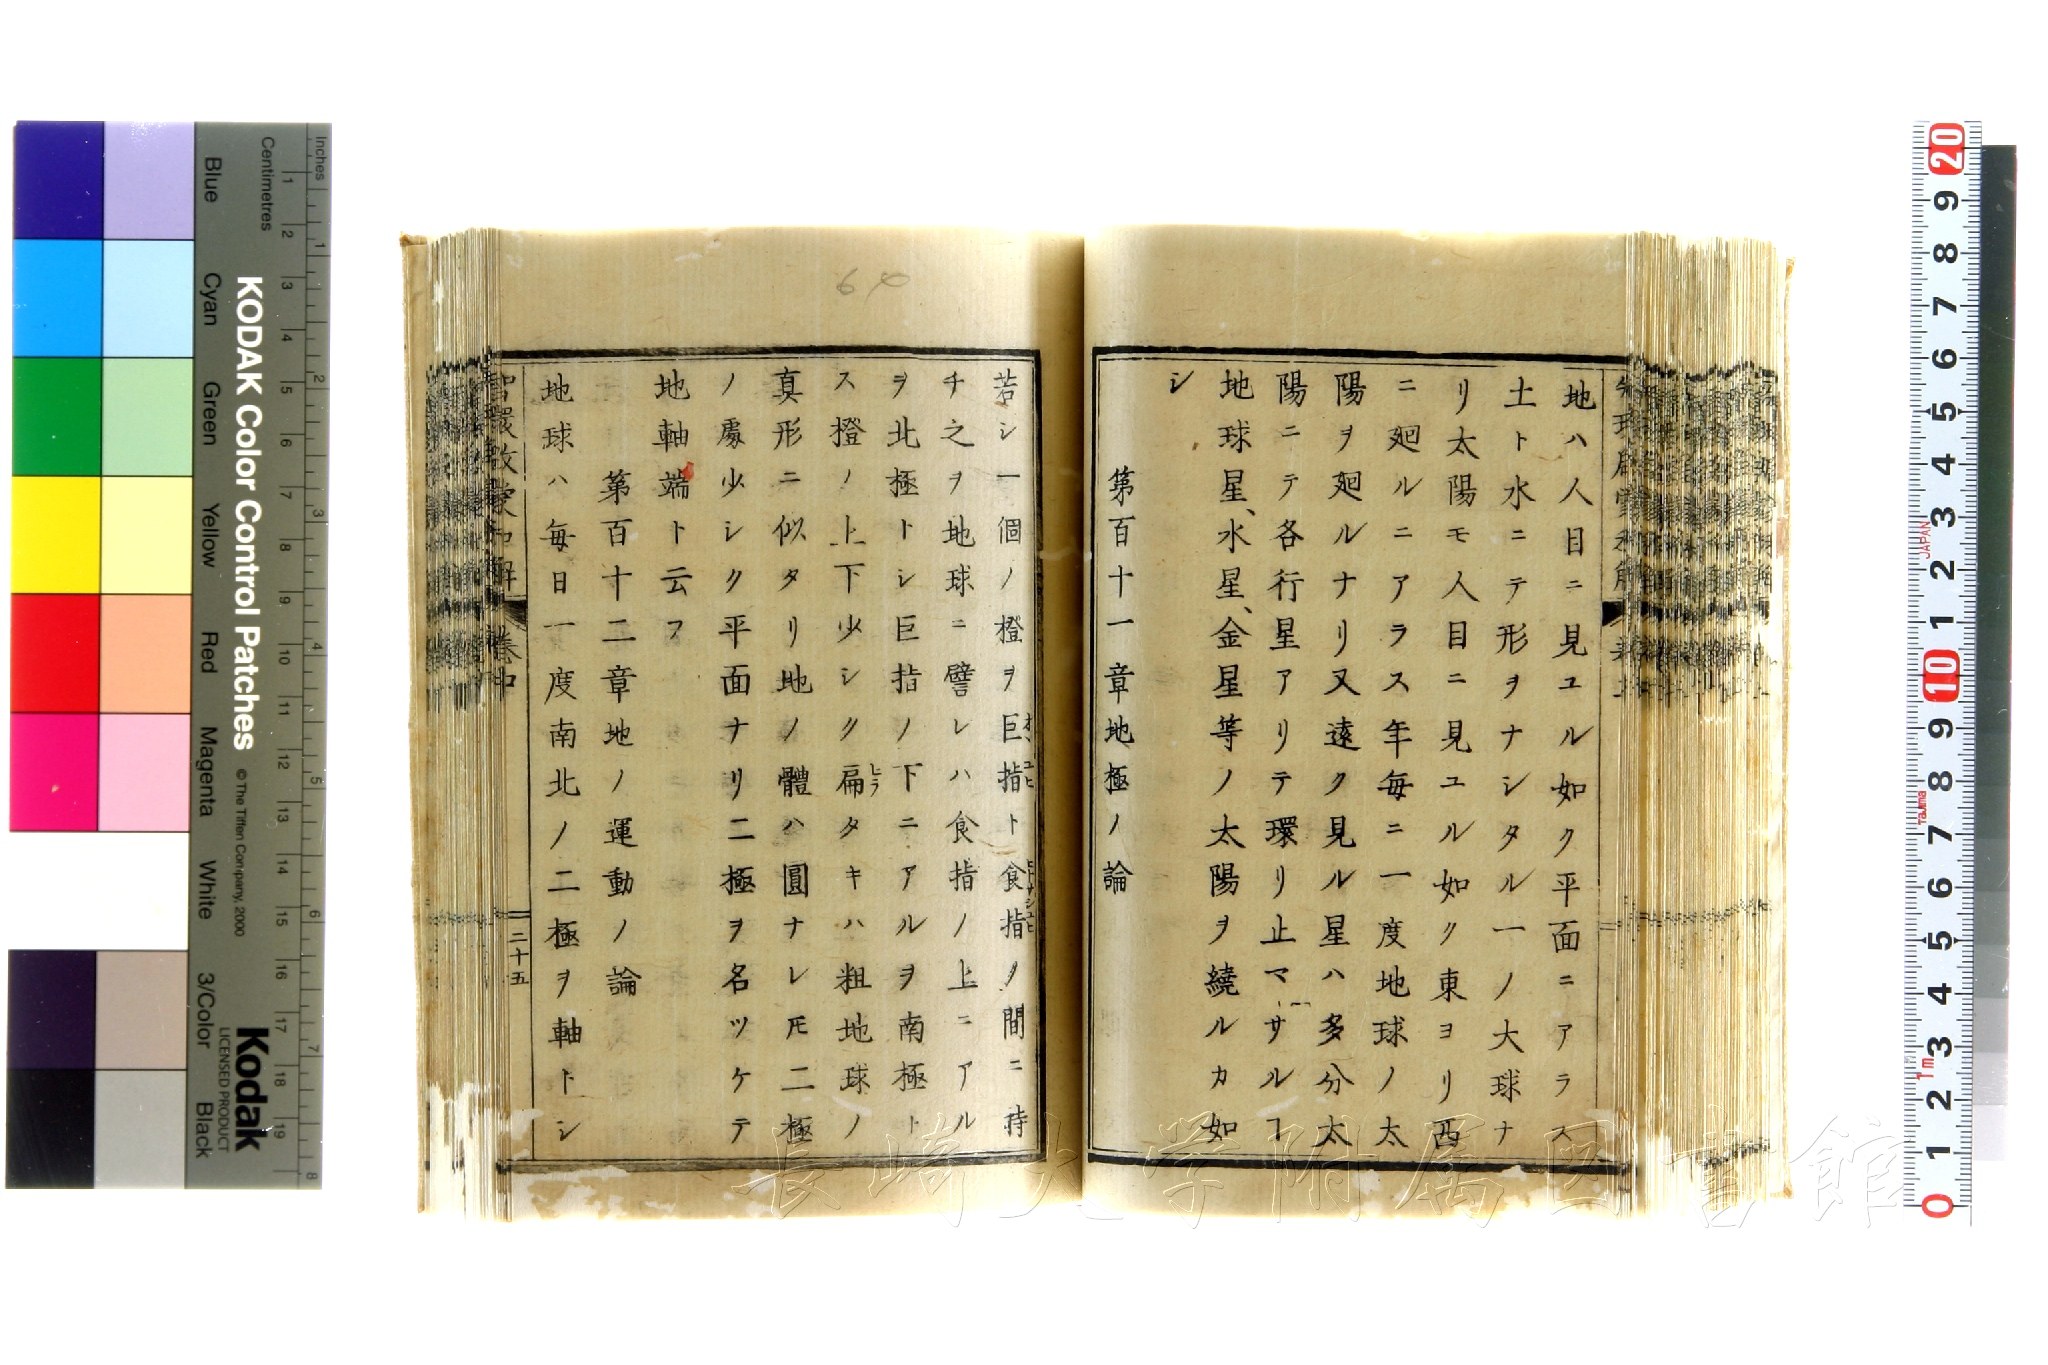 地ハ人目ニ見ユル如ク平面ニアラス
土ト水ニテ形ヲナシタル一ノ大球ナ
リ太陽モ人目ニ見ユル如ク東ヨリ西
ニ廻ルニアラス年毎ニ一度地球ノ太
陽ヲ廻ルナリ又遠ク見ル星ハ多分太
陽ニテ各行星アリテ環リ止マサルヿ
地球星、水星、金星等ノ太陽ヲ繞ルカ如
シ
第百十一章地極ノ論
若シ一個ノ橙ヲ巨指ト食指ノ間ニ持
チ之ヲ地球ニ譬レハ食指ノ上ニアル
ヲ北極トシ巨指ノ下ニアルヲ南極ト
ス橙ノ上下少シク扁タキハ粗地球ノ
ヒラ
真形ニ似タリ地ノ體ハ圓ナレ𪜈二極
ノ處少シク平面ナリ二極ヲ名ツケテ
地軸端ト云フ
第百十二章地ノ運動ノ論
地球ハ毎日一度南北ノ二極ヲ軸トシ
智環啓蒙和解 卷中
二十五
長崎大学附属図書館
KODAK Color Control Patches
© The Tiffen Company, 2000
Kodak
LICENSED PRODUCT
Inches
Centimetres
Blue Cyan Green Yellow Red Magenta White 3/Color Black
1 2 3 4 5 6 7 8
1 2 3 4 5 6 7 8 9 10 11 12 13 14 15 16 17 18 19
20 9 8 7 6 5 4 3 2 1 10 9 8 7 6 5 4 3 2 1 0
JAPAN
Tajima
1m